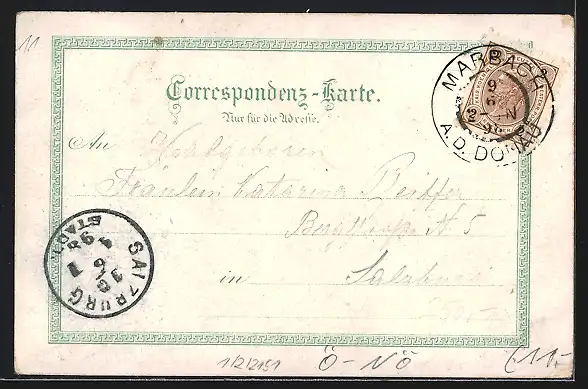 11
Correspondenz-Karte.
Nur für die Adresse.
MARBACH
9
6
2-N
98
A.D. DONAU
An Wohlgeboren
Fräulein Katarina
N 5
in Salzburg
SALZBURG
STADT
10
6
98
1/2/2151
Ö-NÖ
€11,-